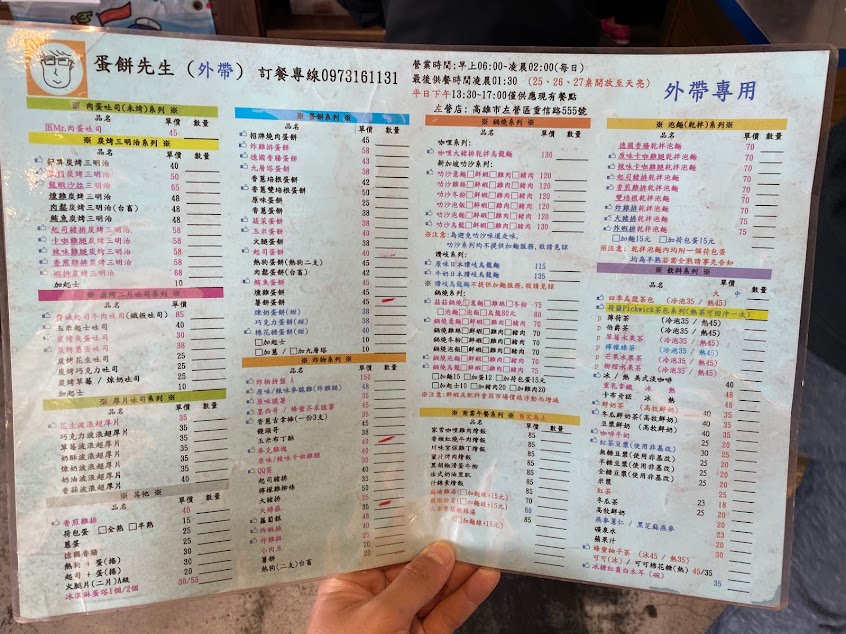 蛋餅先生（外帶）訂餐專線0973161131
營業時間:早上06:00~凌晨02:00(每日)
最後供餐時間凌晨01:30 （25、26、27桌開放至天亮）
平日下午13:30-17:00僅供應現有餐點
左營店：高雄市左營區重信路555號
外帶專用
※ 肉蛋吐司(未烤) ※
品名 單價 數量
蛋Mr.肉蛋吐司 45
※ 炭烤三明治系列 ※
品名 單價 數量
炭烤三明治 40
炭烤三明治 50
龍蝦沙拉炭烤三明治 65
燻雞炭烤三明治 48
肉鬆炭烤三明治(台畜) 48
鮪魚炭烤三明治 48
起司豬排炭烤三明治 58
卡啦雞腿炭烤三明治 58
辣味雞腿炭烤三明治 58
蝦排炭烤三明治 58
加起士 10
※ 炭烤二片吐司系列 ※
品名 單價 數量
脆皮起司牛肉吐司(鐵板吐司) 85
玉米起士吐司 40
炭烤花生吐司 25
炭烤巧克力吐司 25
炭烤草莓／煉奶吐司 25
加起士 10
※ 厚片吐司系列 ※
品名 單價 數量
花生波浪超厚片 35
巧克力波浪超厚片 35
草莓波浪超厚片 35
奶酥波浪超厚片 35
煉奶波浪超厚片 35
奶油波浪超厚片 35
香蒜波浪超厚片 40
※ 其他 ※
品名 單價 數量
香煎雞排 40
荷包蛋 □全熟 □半熟 15
蔥蛋 25
德國香腸 30
熱狗 + 蛋(捲) 30
起司 + 蛋(捲) 30
火腿片(二片)A級 20
冰淇淋蛋塔1個/2個 30/55
※ 蛋餅系列 ※
品名 單價 數量
招牌燒肉蛋餅 45
炸雞排蛋餅 58
德國香腸蛋餅 43
九層塔蛋餅 38
香蔥培根蛋餅 42
香蔥雙培根蛋餅 50
原味蛋餅 30
香蔥蛋餅 38
蔬菜蛋餅 38
玉米蛋餅 38
火腿蛋餅 38
起司蛋餅 38
熱狗蛋餅(熱狗二支) 45
肉鬆蛋餅(台畜) 45
鮪魚蛋餅 45
燻雞蛋餅 45
薯餅蛋餅 45
煉奶蛋餅(甜) 38
巧克力蛋餅(甜) 38
棉花糖蛋餅(甜) 45
□加起士 10
□加蔥 / □加九層塔 10
※ 炸物系列 ※
品名 單價 數量
炸物拼盤 150
原味/辣味麥脆雞(炸雞腿)
原味脆薯
墨西哥 / 蜂蜜芥末脆薯
香蔥吉拿棒(一份3支)
饅頭哥
玉米布丁酥 40
麥克雞塊 40
原味/辣味卡啦雞腿
QQ蛋 40
起司豬排 40
檸檬雞柳條 50
大豬排 35
天婦羅 35
蘿蔔糕 30
炸蝦排 40
炸雞排 40
小肉豆 20
薯餅 20
熱狗(二支)台畜 20
※ 鍋燒系列 ※
品名 單價 數量
咖哩系列：
咖哩大豬排乾拌烏龍麵 130
新加坡叻沙系列：
叻沙意麵□鮮蝦□雞肉□豬肉 120
叻沙雞絲□鮮蝦□雞肉□豬肉 120
叻沙冬粉□鮮蝦□雞肉□豬肉 120
叻沙泡麵□鮮蝦□雞肉□豬肉 120
叻沙烏龍□鮮蝦□雞肉□豬肉 130
※注意:為避免叻沙味道走味，
叻沙系列均不提供加麵服務,敬請見諒
讚岐系列：
原味日本讚岐烏龍麵 115
牛奶日本讚岐烏龍麵 135
※ 讚岐烏龍麵不提供加麵服務,敬請見諒
鍋燒系列：
菇菇鍋燒□意麵□雞絲□冬粉 75
□泡麵□烏龍80元 80
鍋燒意麵□鮮蝦□雞肉□豬肉
鍋燒雞絲□鮮蝦□雞肉□豬肉
鍋燒冬粉□鮮蝦□雞肉□豬肉
鍋燒泡麵□鮮蝦□雞肉□豬肉
鍋燒烏龍□鮮蝦□雞肉□豬肉
□加麵15 □加蛋12 □加荷包蛋15元
□加起士10 □加豬肉20 □加雞肉20
※注意:鮮蝦及配料會因市場價格浮動而增減
※ 商業午餐系列 ※ 售完為止
品名 單價 數量
家常咖哩雞肉燴飯 85
香椒紅燒牛肉燴飯 85
川味宮保雞丁燴飯 85
薑汁燒肉燴飯 85
黑胡椒滑蛋牛柳 85
法式奶油菫肌 85
什錦素燴飯 85
麻油雞湯(□加麵線+15元) 85
(□加麵線+15元) 80
85
(□加麵線+15元)
※ 泡麵(乾拌)系列※
品名 單價 數量
德國香腸乾拌泡麵 70
原味卡啦雞腿乾拌泡麵 70
辣味卡啦雞腿乾拌泡麵 70
起司豬排乾拌泡麵 70
香煎雞排乾拌泡麵 70
雙培根乾拌泡麵 75
炸雞排乾拌泡麵 75
大豬排乾拌泡麵 75
炸蝦排乾拌泡麵 75
□加麵15元 □加荷包蛋15元
※注意: 乾拌泡麵內均附一個荷包蛋
均為半熟若需全熟請事先告知
※ 飲料系列 ※
品名 大 中 數量
四季烏龍茶包 (冷泡35 / 熱45)
荷蘭Pickwick茶包系列(熱茶可回沖一次)
p 薄荷茶 (冷泡35 / 熱45)
p 伯爵茶 (冷泡35 / 熱45)
p 草莓水果茶 (冷泡35 / 熱45)
p 檸檬綠茶 (冷泡35 / 熱45)
p 芒果水果茶 (冷泡35 / 熱45)
p 柳橙水果茶 (冷泡35 / 熱45)
冰 / 熱 美式淡咖啡
重乳拿鐵 冰 熱
卡布奇諾 冰 熱
鮮奶茶(高牧鮮奶)
冬瓜鮮奶茶(高牧鮮奶)
豆漿鮮奶(高牧鮮奶)
咖啡牛奶
紅茶豆漿(使用非基改)
無糖豆漿(使用非基改)
半糖豆漿(使用非基改)
全糖豆漿(使用非基改)
米漿
紅茶
冬瓜茶 23 18
高牧鮮奶
燕麥薏仁 / 黑芝麻燕麥
礦泉水 20
蘋果汁
蜂蜜柚子茶 (冰45 / 熱35)
可可(冰) / 可可棉花糖(熱) 45/35
冰糖紅棗白木耳(碗) 35